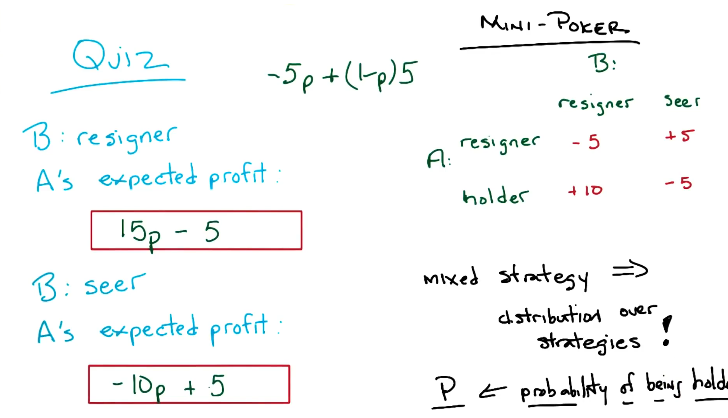 Quiz
-5p + (1-p)5
B: resigner
A's expected profit:
15p - 5
B: seer
A's expected profit:
-10p + 5
MINI-POKER
B:
resigner seer
A: resigner -5 +5
holder +10 -5
mixed strategy ⇒
distribution over
strategies !
P ← probability of being holde